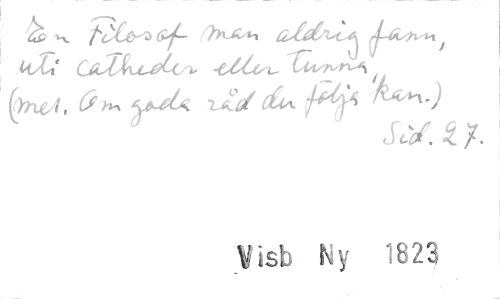 En Filosof man aldrig fann,
uti catheder eller tunna,
(mel. Om goda råd du följa kan.)
Sid. 27.
Visb Ny 1823